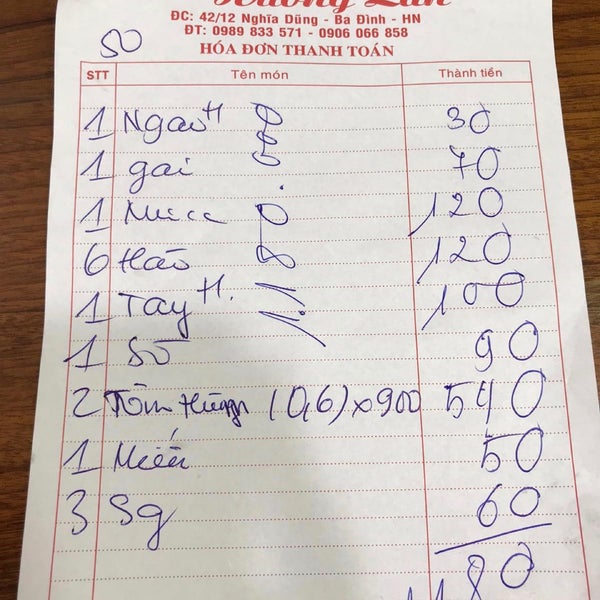 Hương Lan
ĐC: 42/12 Nghĩa Dũng - Ba Đình - HN
ĐT: 0989 833 571 - 0906 066 858
HÓA ĐƠN THANH TOÁN
50
STT Tên món Thành tiền
1 Ngao H 30
1 gai 70
1 120
6 Hào 120
1 Tay H. 100
1 Sò 90
2 Tôm Hùm (0,6) x 900 540
1 Miến 50
3 Sg 60
1180